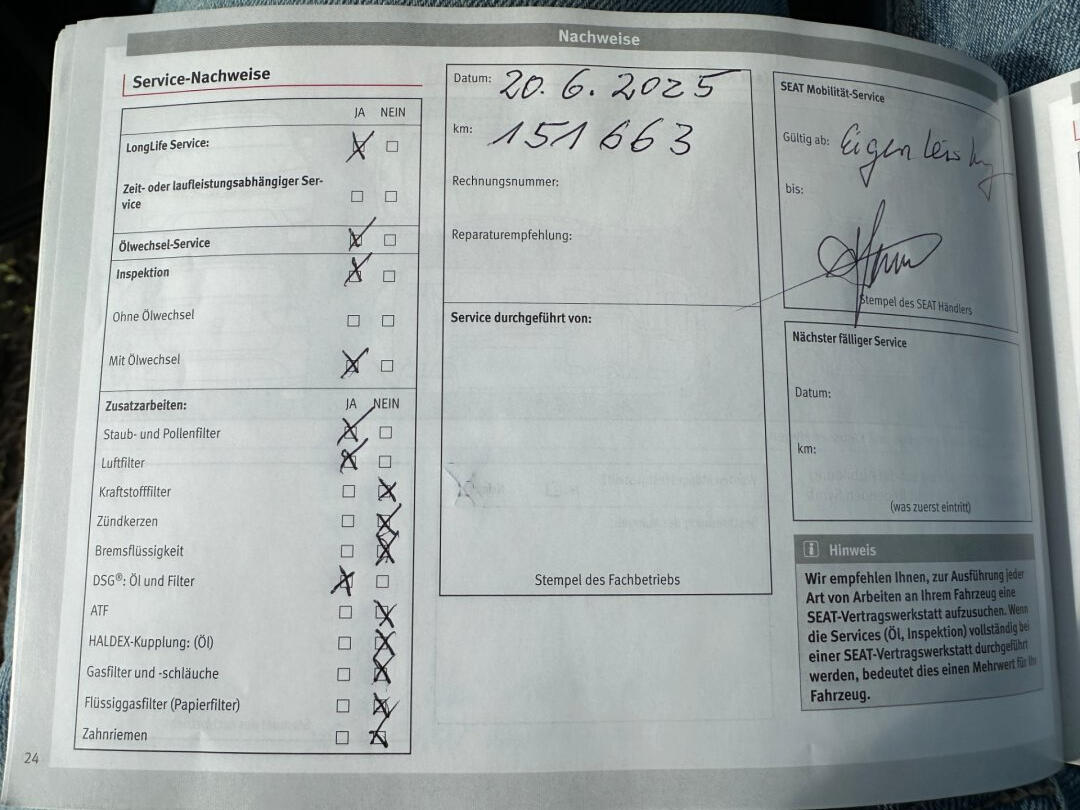 Nachweise
Service-Nachweise
JA NEIN
LongLife Service:
Zeit- oder laufleistungsabhängiger Ser-
vice
Ölwechsel-Service
Inspektion
Ohne Ölwechsel
Mit Ölwechsel
Zusatzarbeiten: JA NEIN
Staub- und Pollenfilter
Luftfilter
Kraftstofffilter
Zündkerzen
Bremsflüssigkeit
DSG®: Öl und Filter
ATF
HALDEX-Kupplung: (Öl)
Gasfilter und -schläuche
Flüssiggasfilter (Papierfilter)
Zahnriemen
24
Datum: 20.6.2025
km: 151663
Rechnungsnummer:
Reparaturempfehlung:
Service durchgeführt von:
Stempel des Fachbetriebs
SEAT Mobilität-Service
Gültig ab: Eigenleistung
bis:
Stempel des SEAT Händlers
Nächster fälliger Service
Datum:
km:
(was zuerst eintritt)
i Hinweis
Wir empfehlen Ihnen, zur Ausführung jeder
Art von Arbeiten an Ihrem Fahrzeug eine
SEAT-Vertragswerkstatt aufzusuchen. Wenn
die Services (Öl, Inspektion) vollständig bei
einer SEAT-Vertragswerkstatt durchgeführt
werden, bedeutet dies einen Mehrwert für Ihr
Fahrzeug.